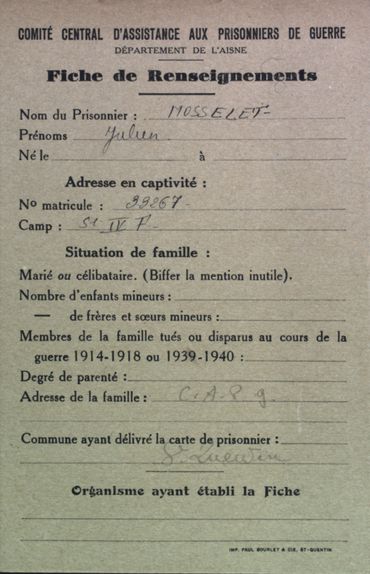 COMITÉ CENTRAL D'ASSISTANCE AUX PRISONNIERS DE GUERRE
DÉPARTEMENT DE L'AISNE
Fiche de Renseignements
Nom du Prisonnier : MOSSELET
Prénoms Julien
Né le à
Adresse en captivité :
No matricule : 39267
Camp : St IV F
Situation de famille :
Marié ou célibataire. (Biffer la mention inutile).
Nombre d'enfants mineurs :
— de frères et sœurs mineurs :
Membres de la famille tués ou disparus au cours de la
guerre 1914-1918 ou 1939-1940 :
Degré de parenté :
Adresse de la famille : C.A.P.g
Commune ayant délivré la carte de prisonnier :
St Quentin
Organisme ayant établi la Fiche
IMP. PAUL BOURLET & CIE, ST-QUENTIN